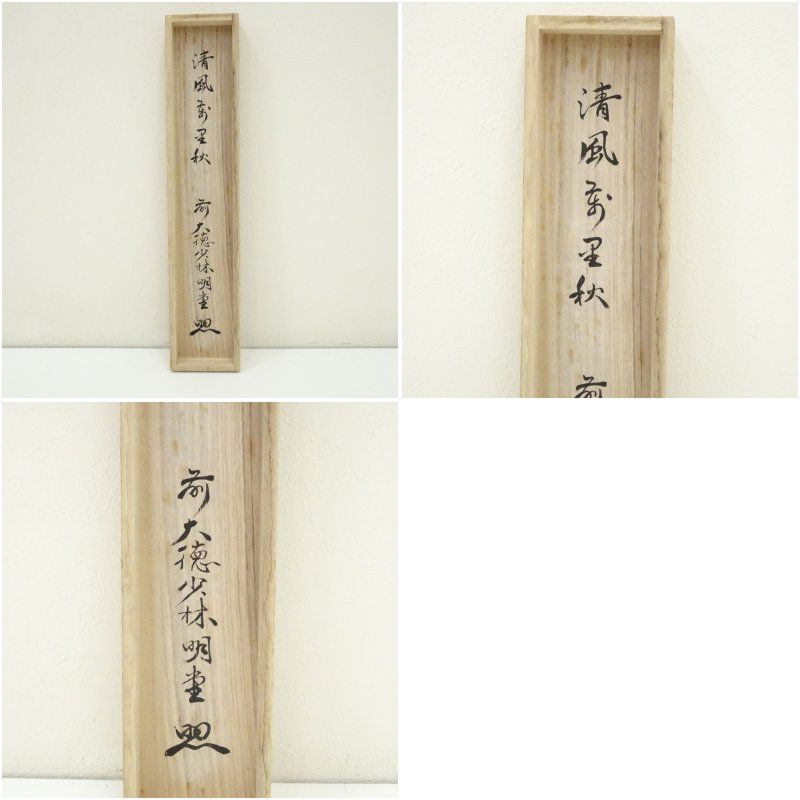 清風万里秋
前大徳少林明堂
清風万里秋
前
前大徳少林明堂